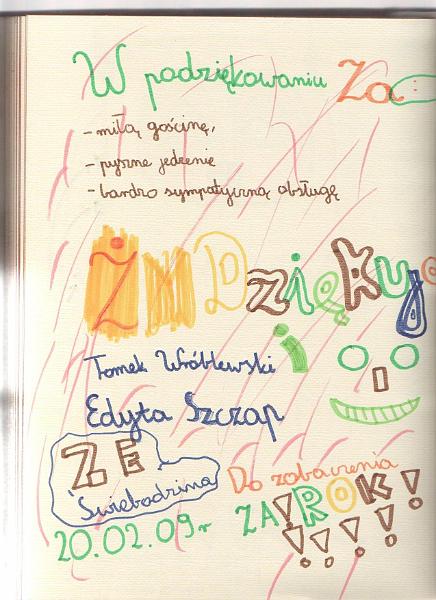 W podziękowaniu Za
- miłą gościnę,
- pyszne jedzenie
- bardzo sympatyczną obsługę
Dzięku
Tomek Wróblewski i
Edyta Szczap
ZE
Świebodzina
Do zobaczenia
ZA ROK!
20.02.09r